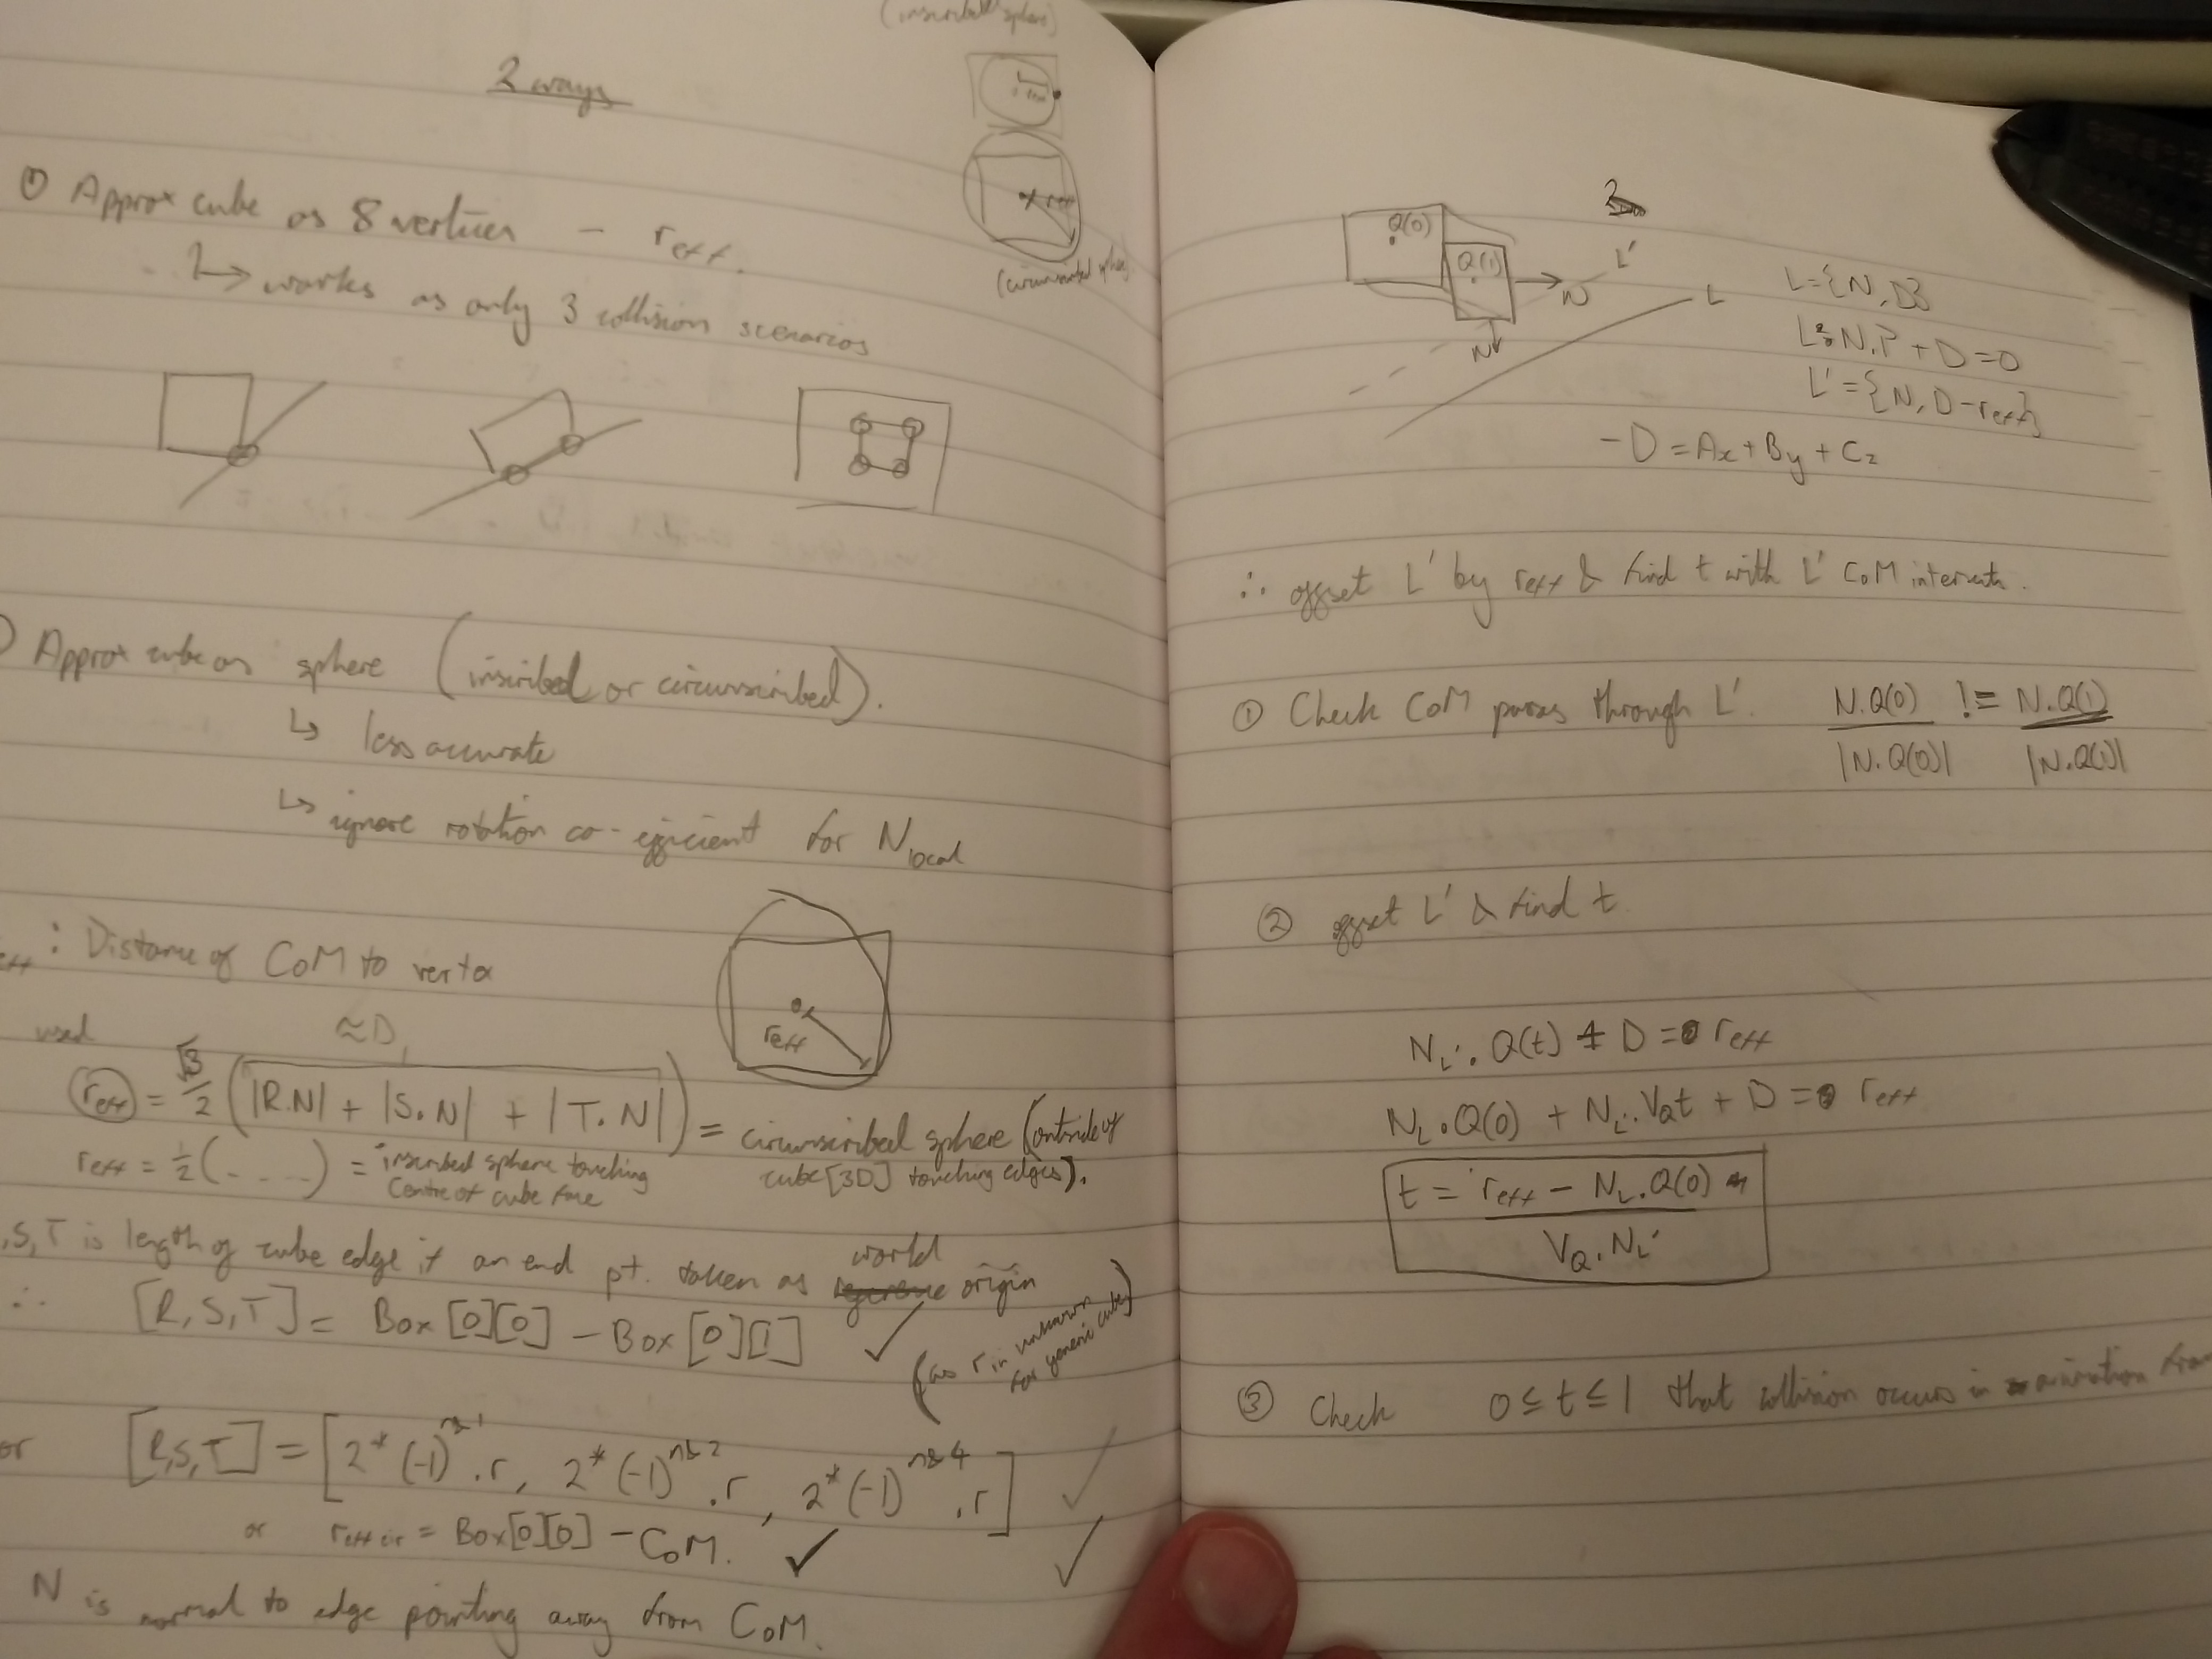 (inscribed sphere)
2 ways
① Approx cube as 8 vertices - reff.
reff
(circumscribed sphere)
↳ works as only 3 collision scenarios
Approx cube as sphere (inscribed or circumscribed).
↳ less accurate
↳ ignore rotation co-efficient for Nlocal
: Distance of CoM to vertex
reff
used
≈D
reff = √3/2 (|R.N| + |S.N| + |T.N|) = circumscribed sphere (outside of
cube [3D] touching edges).
reff = 1/2 (. . . .) = inscribed sphere touching
Centre of cube face
,S,T is length of cube edge if an end pt. taken as world origin
∴ [R,S,T] = Box[0][0] - Box[0][1] ✓
(as r is unknown
for generic cube)
or [R,S,T] = [2*(-1)^n&1 .r, 2*(-1)^n&2 .r, 2*(-1)^n&4 .r] ✓
or reff = Box[0][0] - CoM. ✓ ✓
N is normal to edge pointing away from CoM.
Q(0)
Q(1)
N
N
L'
L
L={N,D}
L: N.P + D = 0
L'={N, D-reff}
-D = Ax + By + Cz
∴ offset L' by reff & find t with L' CoM intersects.
① Check CoM passes through L'. N.Q(0)/|N.Q(0)| != N.Q(1)/|N.Q(1)|
② offset L' & find t
NL'. Q(t) + D = reff
NL.Q(0) + NL'.VQt + D = reff
t = reff - NL.Q(0) / VQ.NL'
③ Check 0 ≤ t ≤ 1 that collision occurs in animation